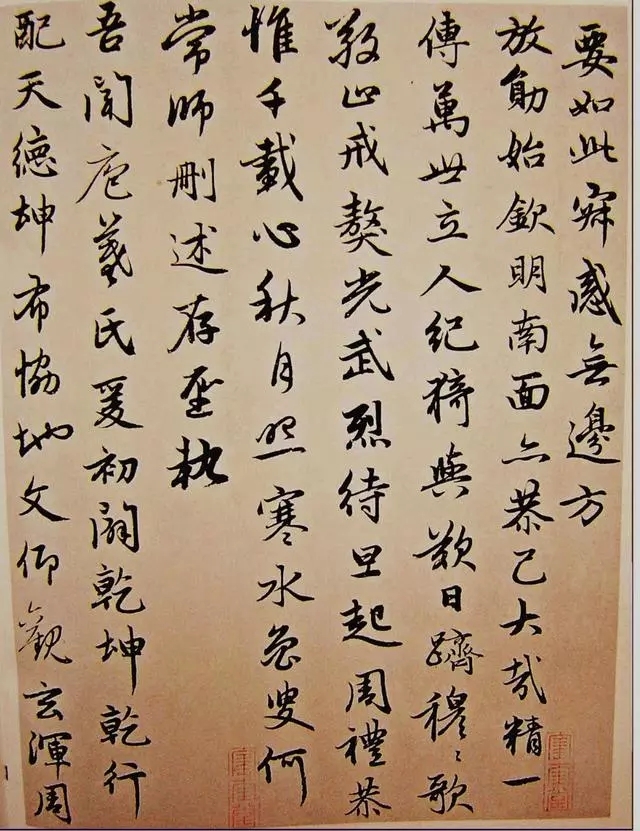 要如此寂感無邊方
放勛始欽明南面亦恭己大哉精一
傳萬世立人紀猗與歎日躋穆々歌
敬止戒獒光武烈待旦起周禮恭
惟千載心秋月照寒水魯叟何
常師刪述存聖軌
吾聞庖羲氏爰初闢乾坤乾行
配天德坤布協地文仰觀玄渾周